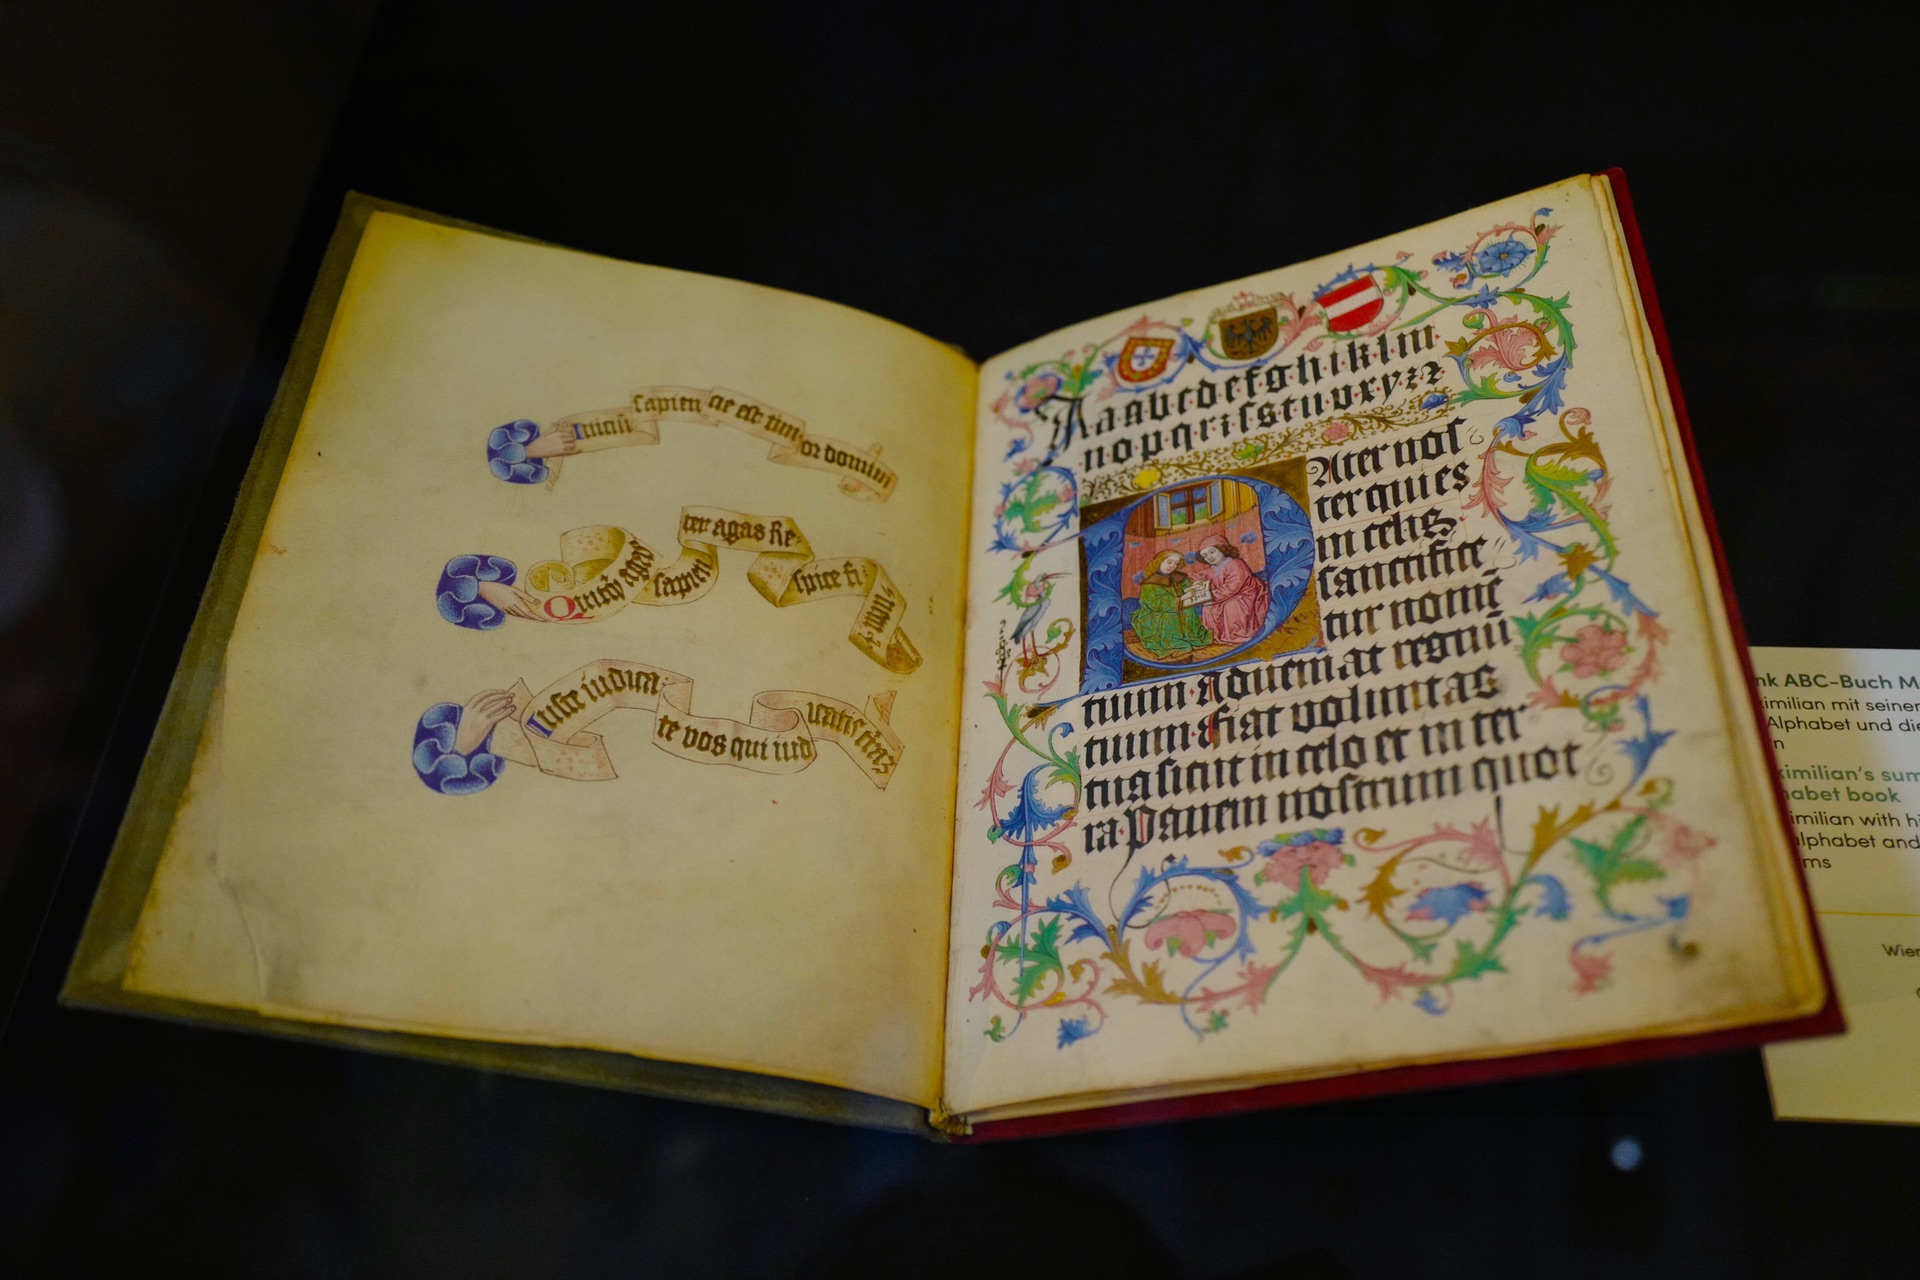 Iniciū sapien ae est tim or domini
Quitq̄ agas
sapien ter agas Re
spice fi
nem
Iuste iudica
te vos qui iud
icatis trās
A a a b c d e f g h i k l m
n o p q r i s s t u v x y z
Ater nos
ter qui es
in celis
sanctifice
tur nomē
tuum Adueniat regnū
tuum fiat voluntas
tua sicut in celo et in ter
ra Panem nostrum quot
nk ABC-Buch M
ximilian mit seiner
Alphabet und die
n
ximilian's sum
habet book
imilian with hi
alphabet and
ms
Wien